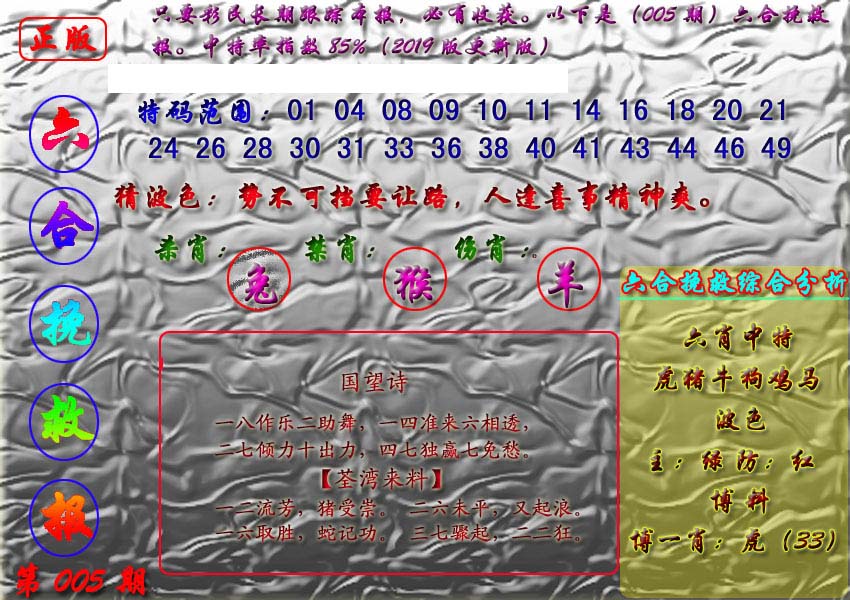 正版
只要彩民长期跟踪本报，必有收获。以下是（005期）六合挽救
报。中特率指数85%（2019版更新版）
六合挽救报
第005期
特码范围：01 04 08 09 10 11 14 16 18 20 21
24 26 28 30 31 33 36 38 40 41 43 44 46 49
猜波色：势不可挡要让路，人逢喜事精神爽。
杀肖：兔 禁肖：猴 伤肖：羊
国望诗
一八作乐二助舞，一四准来六相透，
二七倾力十出力，四七独赢七免愁。
【荃湾来料】
一二流芳，猪受崇。 二六未平，又起浪。
一六取胜，蛇记功。 三七骤起，二二狂。
六合挽救综合分析
六肖中特
虎猪牛狗鸡马
波色
主：绿防：红
博料
博一肖：虎（33）